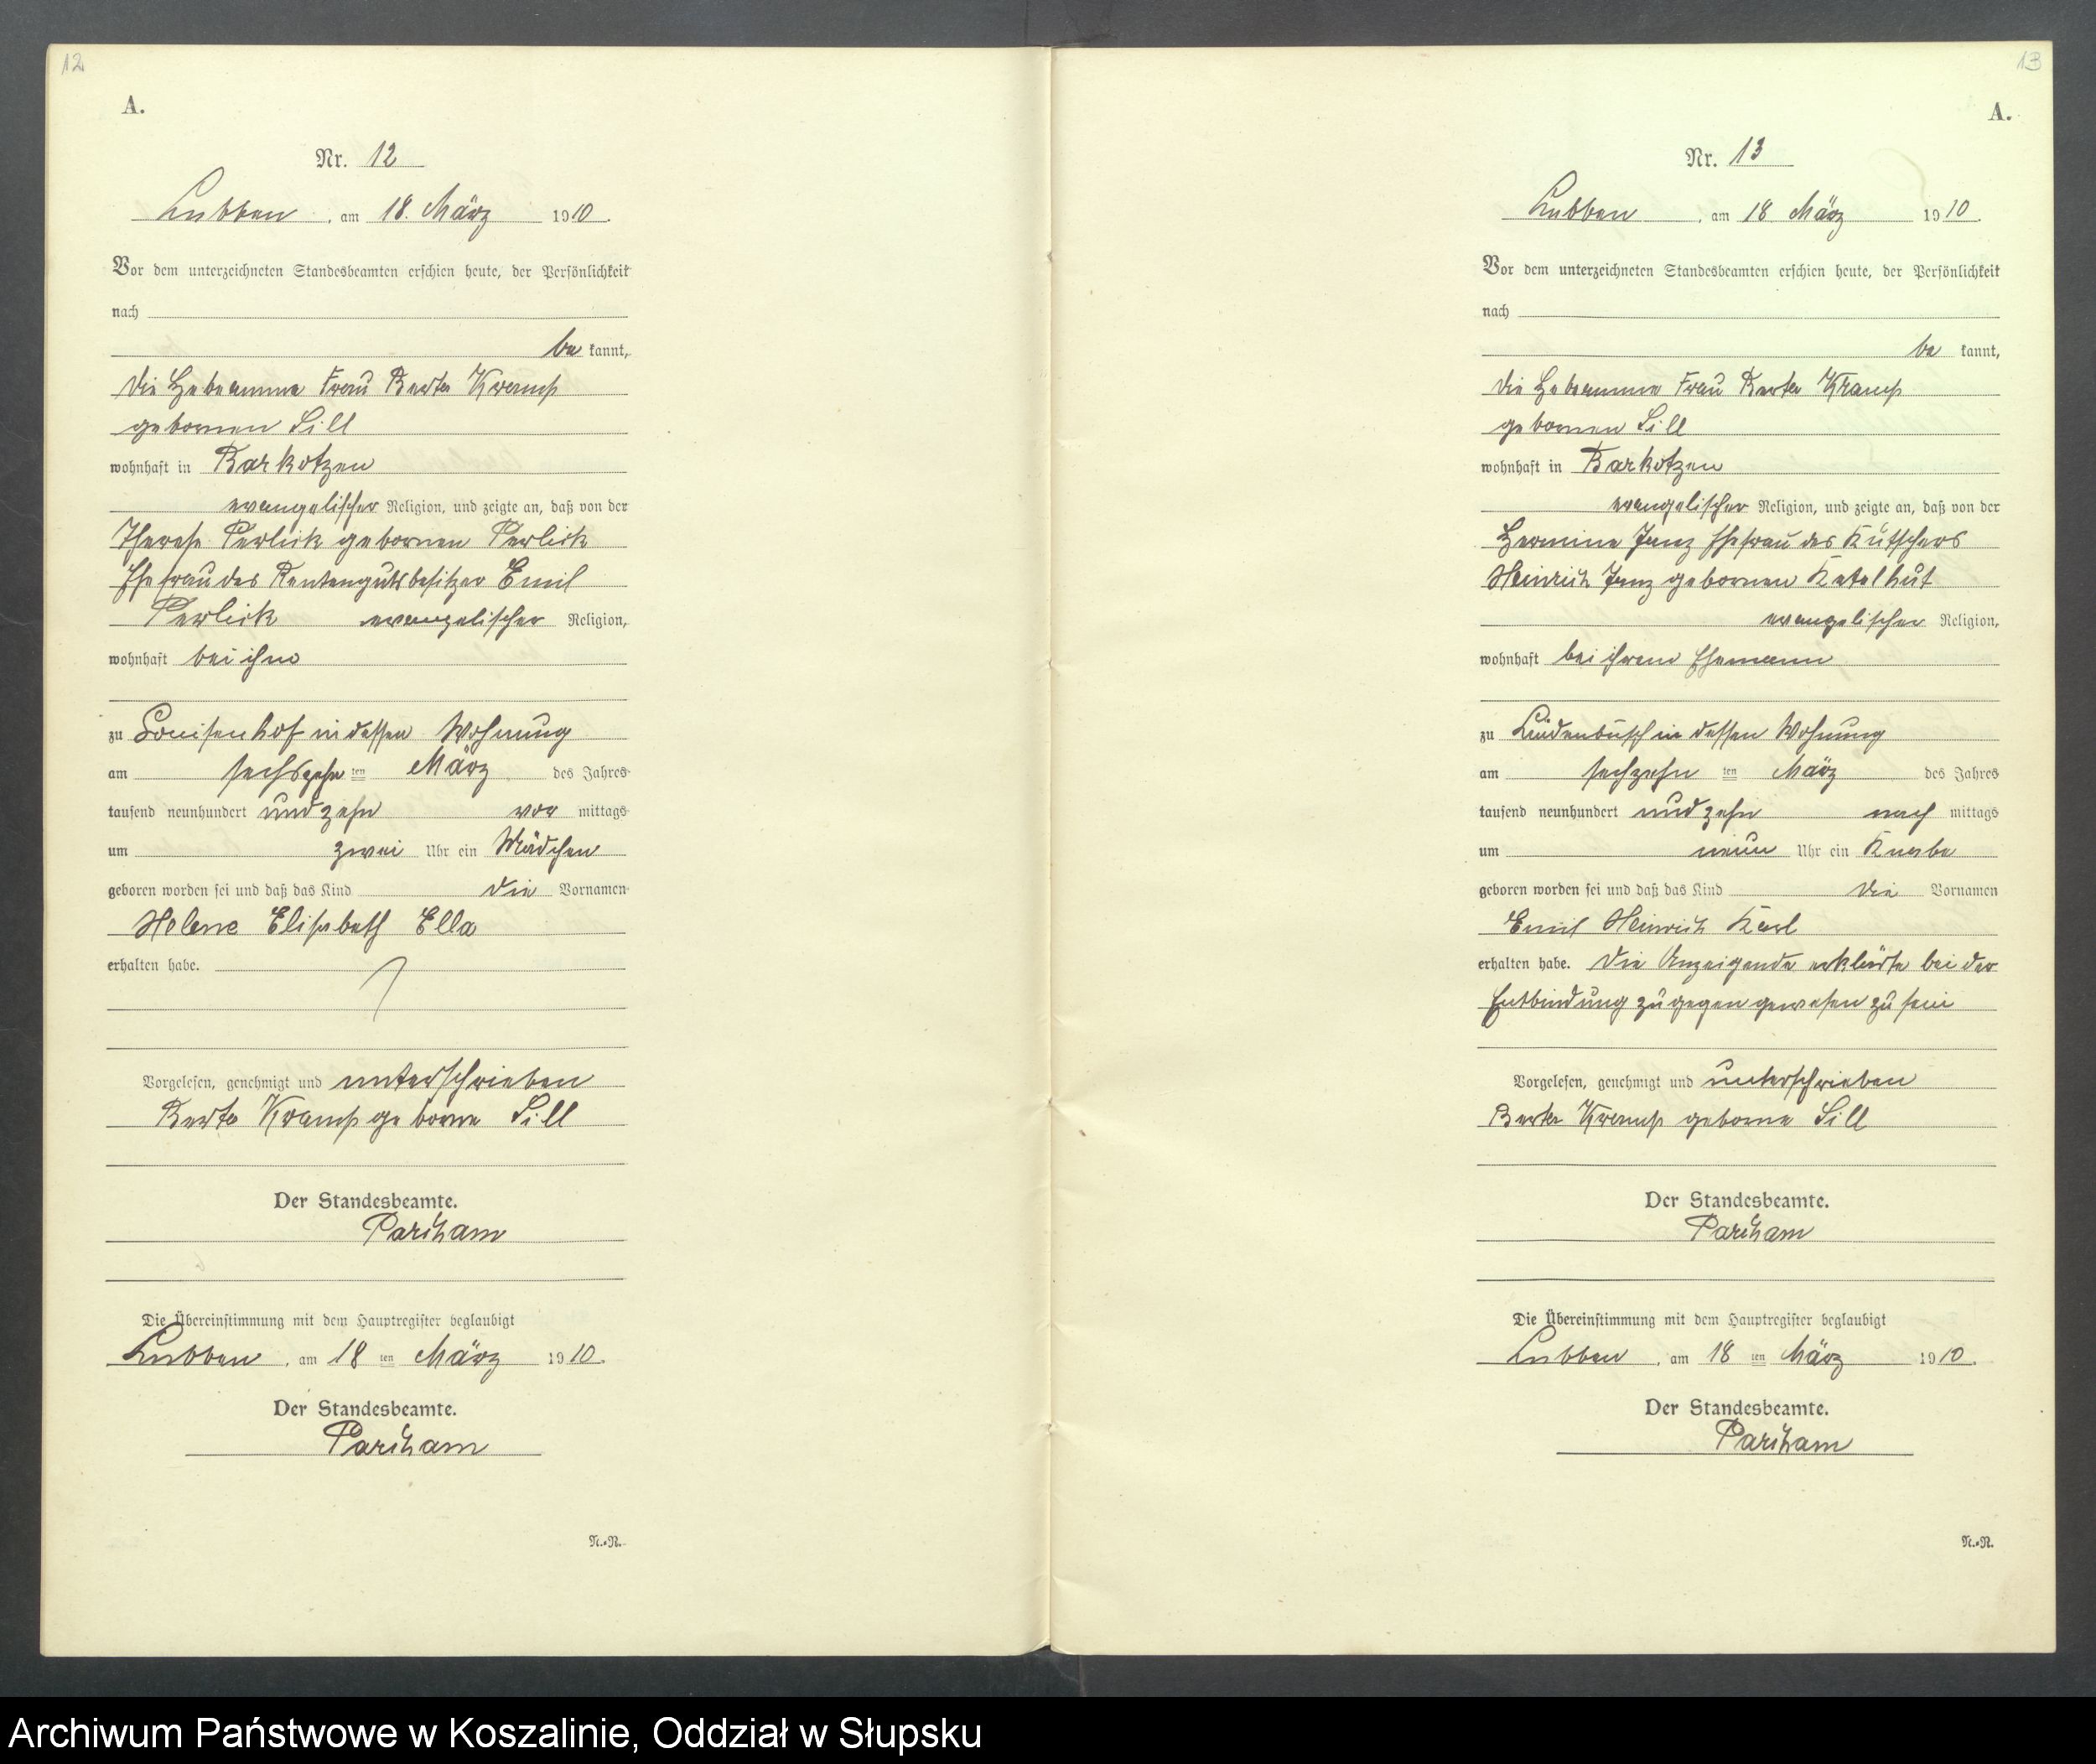 12
A.
Nr. 12
Lubben, am 18. März 1910.
Vor dem unterzeichneten Standesbeamten erschien heute, der Persönlichkeit
nach
be kannt,
die Hebeamme Frau Berta Kramp
gebornen Sill
wohnhaft in Barkotzen
evangelischer Religion, und zeigte an, daß von der
Therese Perlick gebornen Perlick
Ehefrau des Rentengutsbesitzer Emil
Perlick evangelischer Religion,
wohnhaft bei ihm
zu Louisenhof in dessen Wohnung
am sechszehn ten März des Jahres
tausend neunhundert und zehn vor mittags
um zwei Uhr ein Mädchen
geboren worden sei und daß das Kind die Vornamen
Helene Elisabeth Ella
erhalten habe.
Vorgelesen, genehmigt und unterschrieben
Berta Kramp geborne Sill
Der Standesbeamte.
Parcham
Die Übereinstimmung mit dem Hauptregister beglaubigt
Lubben, am 18 ten März 1910.
Der Standesbeamte.
Parcham
N.-R.
13
A.
Nr. 13
Lubben, am 18 März 1910.
Vor dem unterzeichneten Standesbeamten erschien heute, der Persönlichkeit
nach
be kannt,
die Hebeamme Frau Berta Kramp
gebornen Sill
wohnhaft in Barkotzen
evangelischer Religion, und zeigte an, daß von der
Hermine Janz Ehefrau des Kutschers
Heinrich Janz gebornen Ketelhut
evangelischer Religion,
wohnhaft bei ihrem Ehemann
zu Lindenbusch in dessen Wohnung
am sechzehn ten März des Jahres
tausend neunhundert und zehn nach mittags
um neun Uhr ein Knabe
geboren worden sei und daß das Kind die Vornamen
Emil Heinrich Karl
erhalten habe. Die Anzeigende erklärte bei der
Entbindung zugegen gewesen zu sein
Vorgelesen, genehmigt und unterschrieben
Berta Kramp geborne Sill
Der Standesbeamte.
Parcham
Die Übereinstimmung mit dem Hauptregister beglaubigt
Lubben, am 18 ten März 1910.
Der Standesbeamte.
Parcham
N.-R.
Archiwum Państwowe w Koszalinie, Oddział w Słupsku